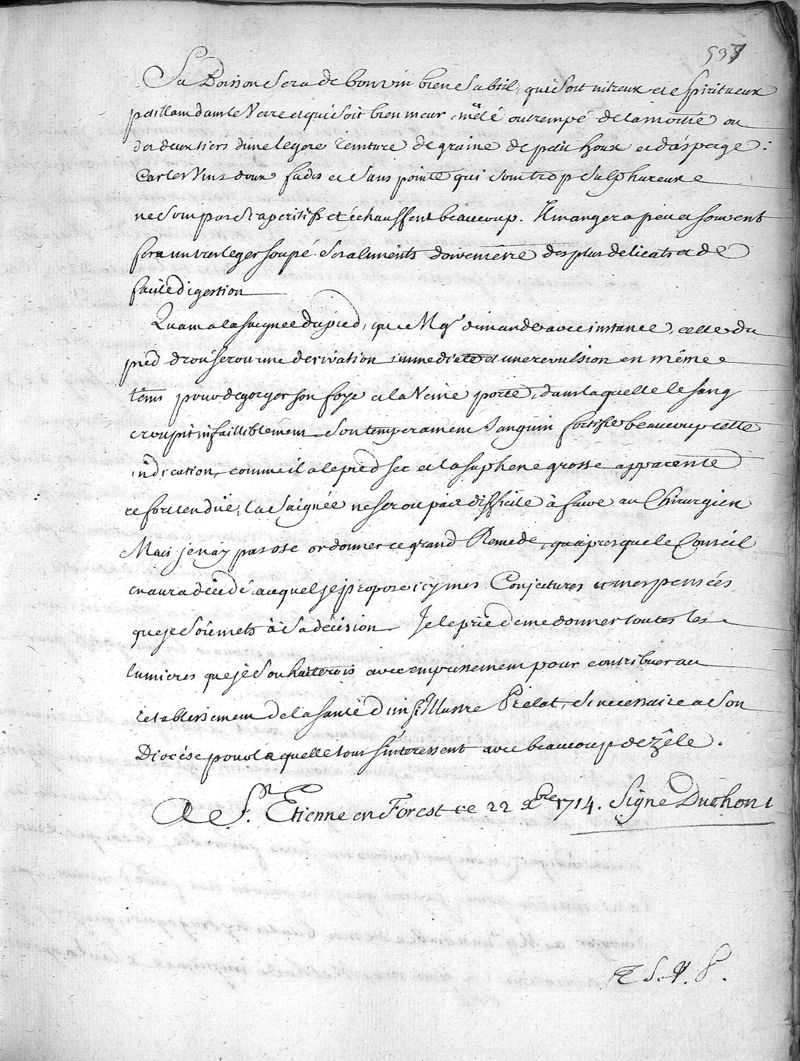 537
Sa Boisson sera de bon vin bien subtil, qui soit nitreux et spiritueux
petillant dans le Verre et qui soit bien meur, mêlé ou trempé de la moitié ou
des deux tiers d'une legere teinture de graine de petit houx et d'asperge :
Car les Vins doux fades et sans pointe qui sont trop sulphureux
ne sont pas si aperitifs et échauffent beaucoup. Il mangera peu et souvent
fera un tres leger soupé ses aliments doivent être des plus delicats et de
facile digestion
Quant a la saignée du pied, que Mgr demande avec instance, celle du
pied droit seroit une derivation immediate et une revulsion en même
téms pour degorger son foye et la Veine porte, dans laquelle le sang
croupit infailliblement son temperament sanguin fortifie beaucoup cette
indication, comme il a le pied sec et la saphene grosse apparente
et fort tendüe, la saignée ne seroit pas difficile à faire au Chirurgien
Mais je n'ay pas osé ordonner ce grand Remede, qu'apres que le Conseil
en aura décidé auquel je propose icy mes Conjectures et mes pensées
que je soûmets à sa décision Je le prie de me donner toutes les
lumieres que je souhaitterois avec empressement pour contribuer au
retablissement de la santé d'un si Illustre Prelat, si necessaire a son
Diocése pour laquelle tous s'interessent avec beaucoup de zêle.
A St. Etienne en Forest ce 22 xbre 1714. Signé Duchon
T. S. V. P.